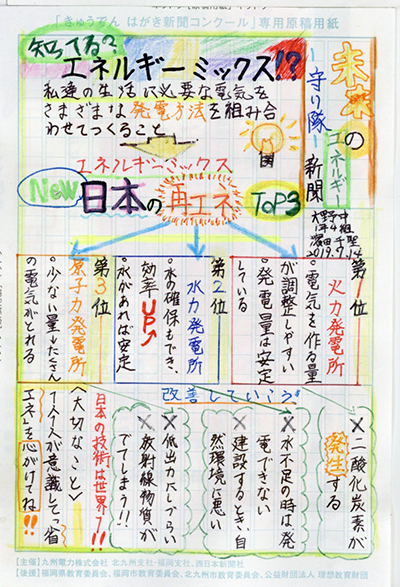 「きゅうでん はがき新聞コンクール」専用原稿用紙
未来の
エネルギー
守り隊
新聞
大野中
1年4組
濱田千聖
2019.9.14
知ってる?
エネルギーミックス!?
私達の生活に必要な電気を
さまざまな発電方法を組み合
わせてつくること
エネルギーミックス
New
日本の再エネ
TOP3
第1位
火力発電所
・電気を作る量
が調整しやすい
・発電量は安定
している
第2位
水力発電所
・水の確保もでき、
効率UP
水があれば安定
第3位
原子力発電所
・少ない量→たくさん
の電気がとれる
改善していこう
×二酸化炭素が
発生する
×水不足の時は発
電できない
×建設するとき、自
然環境に悪い
×低出力にしづらい
×放射線物質が
でてしまう!!
日本の技術は世界一!!
<大切なこと>
1人1人が意識して"省
エネ"を心がけてね!!
【主催】九州電力株式会社 北九州支社・福岡支社、西日本新聞社
【後援】福岡県教育委員会、福岡市教育委員会、北九州市教育委員会、公益財団法人 理想教育財団